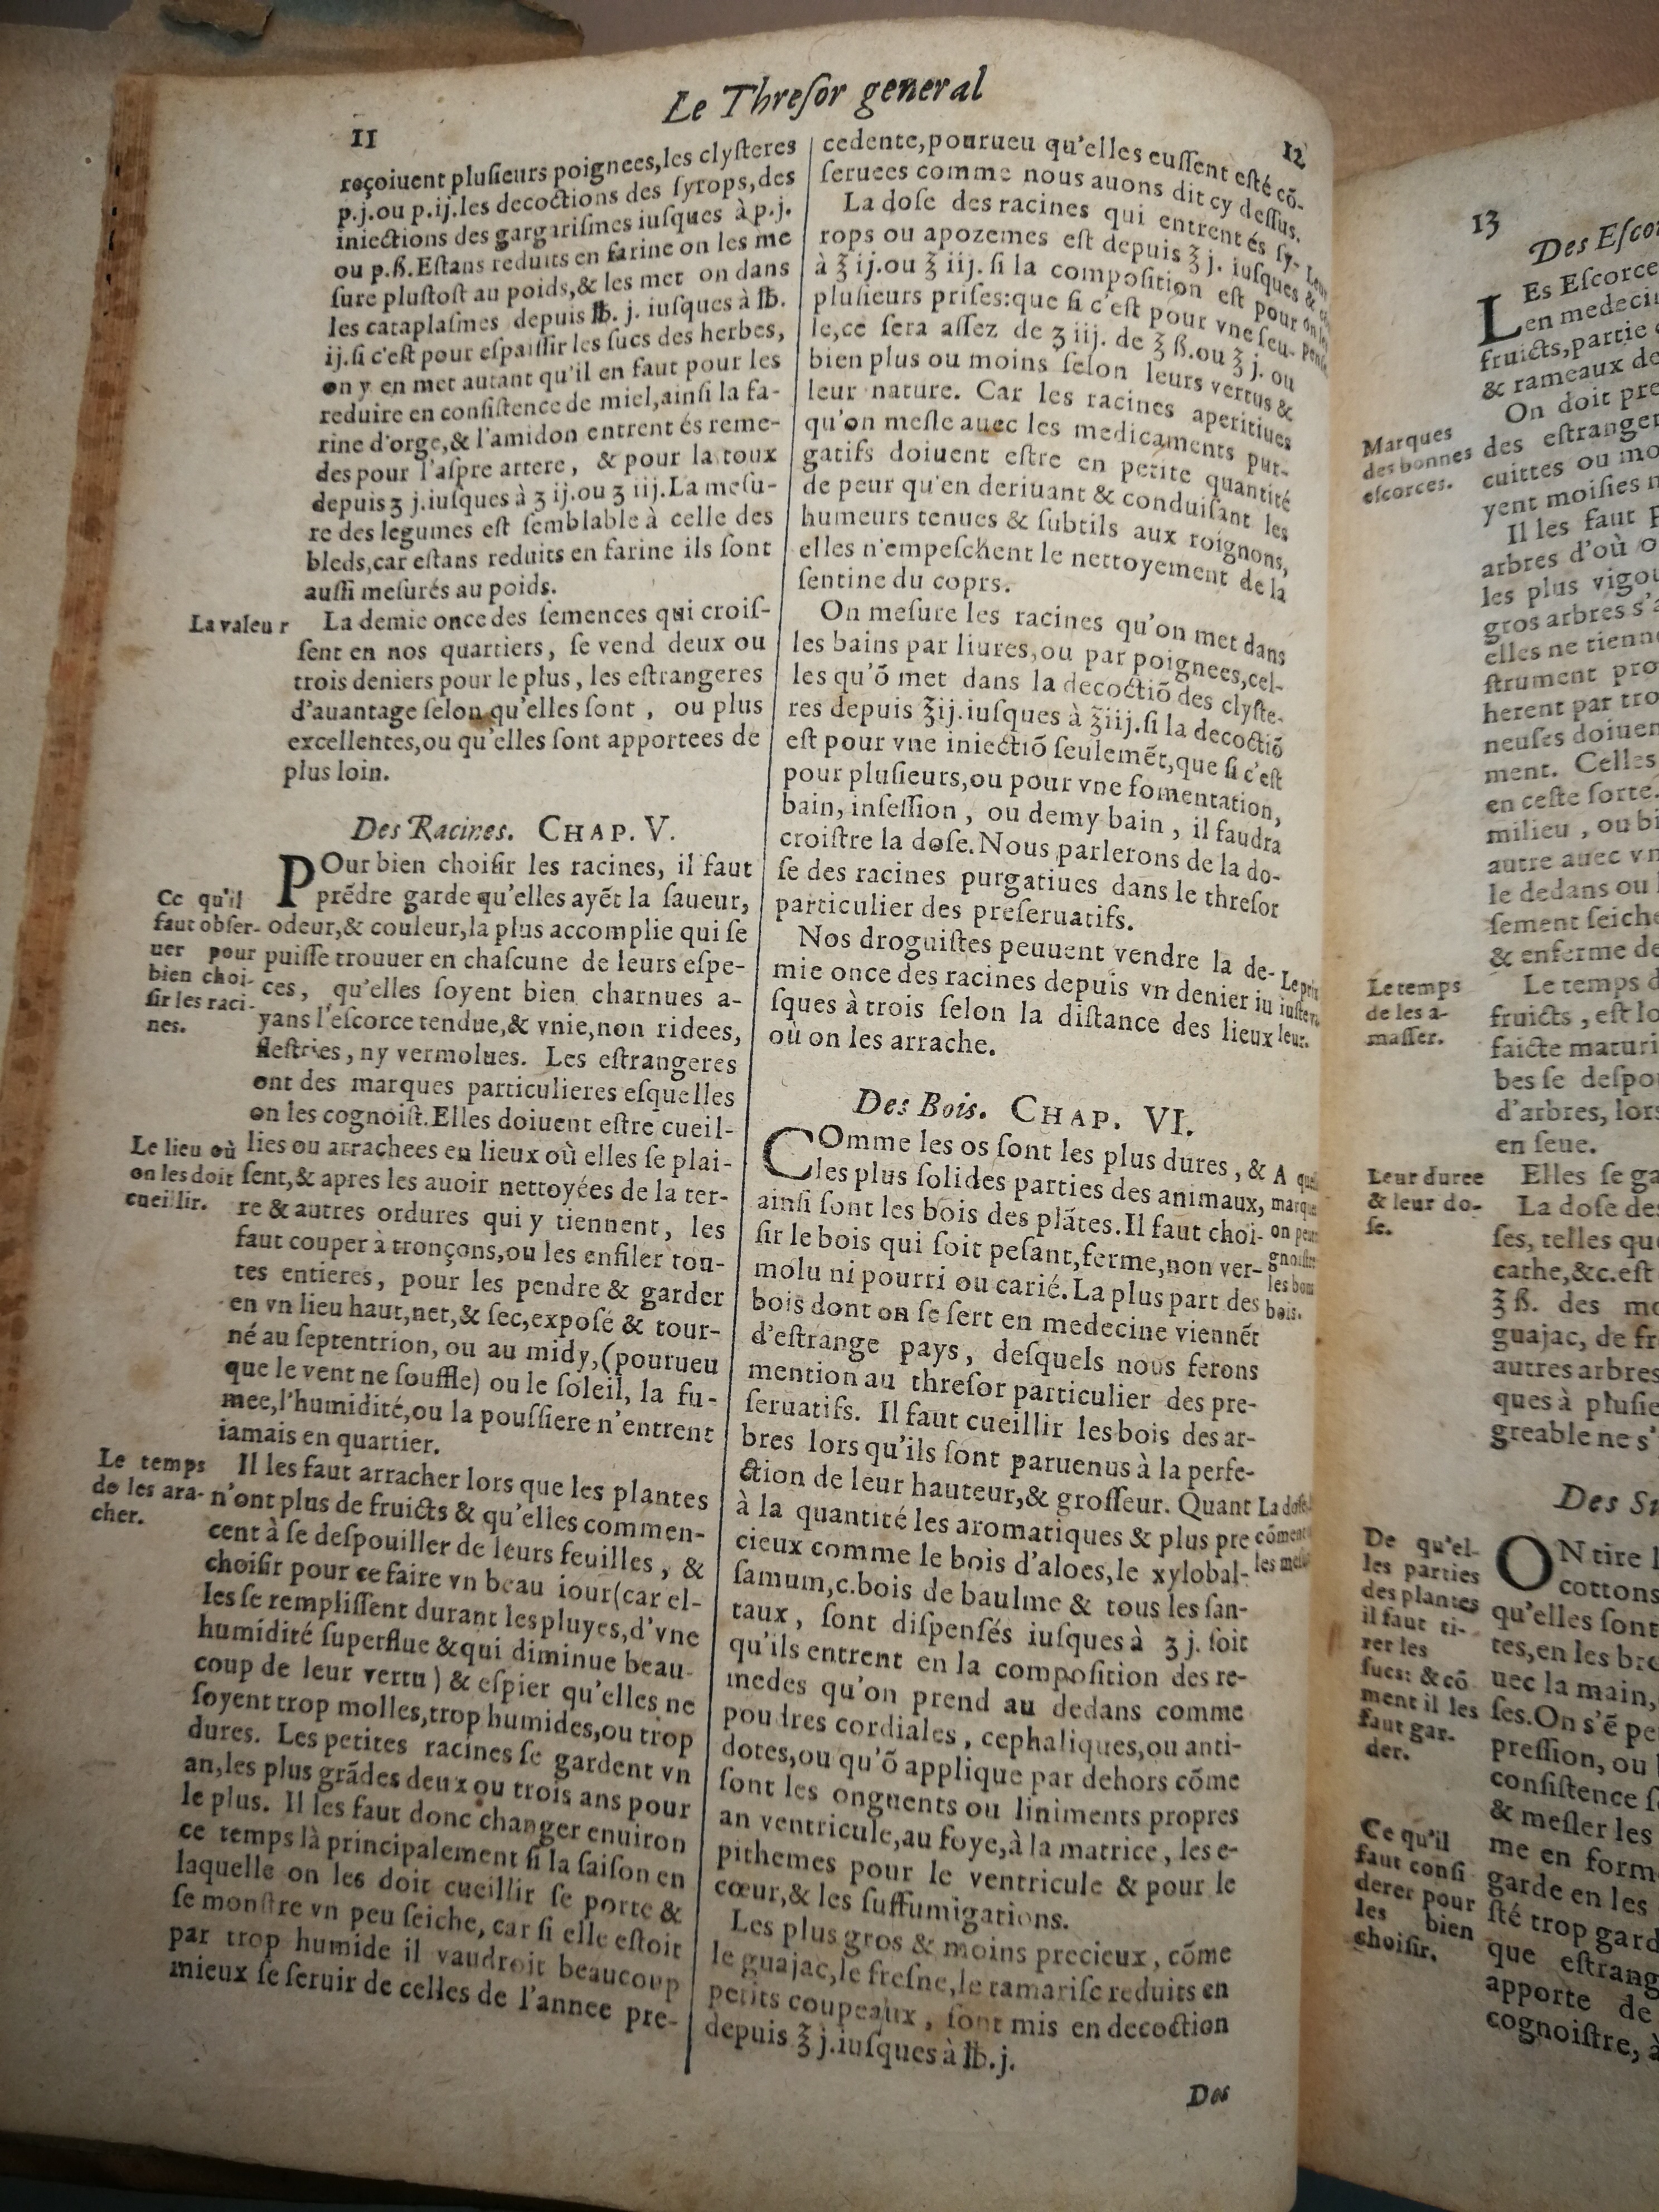 Le Threſor general
11
reçoiuent pluſieurs poignees,les clyſteres
p.j.ou p.ij.les decoctions des ſyrops,des
iniections des gargariſmes iuſques à p.j.
ou p.ß.Eſtans reduits en farine on les me
ſure pluſtoſt au poids,& les met on dans
les cataplaſmes depuis ℔. j. iuſques à ℔.
ij.ſi c'eſt pour eſpaiſſir les ſucs des herbes,
on y en met autant qu'il en faut pour les
reduire en conſiſtence de miel,ainſi la fa-
rine d'orge,& l'amidon entrent és reme-
des pour l'aſpre artere, & pour la toux
depuis ʒ j.iuſques à ʒ ij.ou ʒ iij.La meſu-
re des legumes eſt ſemblable à celle des
bleds,car eſtans reduits en farine ils ſont
auſſi meſurés au poids.
La valeur
La demie once des ſemences qui croiſ-
ſent en nos quartiers, ſe vend deux ou
trois deniers pour le plus, les eſtrangeres
d'auantage ſelon qu'elles ſont , ou plus
excellentes,ou qu'elles ſont apportees de
plus loin.
Des Racines. CHAP. V.
POur bien choiſir les racines, il faut
prẽdre garde qu'elles ayẽt la ſaueur,
odeur,& couleur,la plus accomplie qui ſe
puiſſe trouuer en chaſcune de leurs eſpe-
ces, qu'elles ſoyent bien charnues a-
yans l'eſcorce tendue,& vnie,non ridees,
fleſtries, ny vermolues. Les eſtrangeres
ont des marques particulieres eſquelles
on les cognoiſt.Elles doiuent eſtre cueil-
lies ou arrachees en lieux où elles ſe plai-
ſent,& apres les auoir nettoyées de la ter-
re & autres ordures qui y tiennent, les
faut couper à tronçons,ou les enfiler tou-
tes entieres, pour les pendre & garder
en vn lieu haut,net,& ſec,expoſé & tour-
né au ſeptentrion, ou au midy,(pourueu
que le vent ne ſouffle) ou le ſoleil, la fu-
mee,l'humidité,ou la pouſſiere n'entrent
iamais en quartier.
Ce qu'il
faut obſer-
uer pour
bien choi-
ſir les raci-
nes.
Le lieu où
on les doit
cueillir.
Le temps
de les ara-
cher.
Il les faut arracher lors que les plantes
n'ont plus de fruicts & qu'elles commen-
cent à ſe deſpouiller de leurs feuilles, &
choiſir pour ce faire vn beau iour(car el-
les ſe rempliſſent durant les pluyes,d'vne
humidité ſuperflue &qui diminue beau-
coup de leur vertu) & eſpier qu'elles ne
ſoyent trop molles,trop humides,ou trop
dures. Les petites racines ſe gardent vn
an,les plus grãdes deux ou trois ans pour
le plus. Il les faut donc changer enuiron
ce temps là principalement ſi la ſaiſon en
laquelle on les doit cueillir ſe porte &
ſe monſtre vn peu ſeiche, car ſi elle eſtoit
par trop humide il vaudroit beaucoup
mieux ſe ſeruir de celles de l'annee pre-
12
cedente,pourueu qu'elles euſſent eſté cõ-
ſeruees comme nous auons dit cy deſſus.
La doſe des racines qui entrent és ſy-
rops ou apozemes eſt depuis ℥ j. iuſques
à ℥ ij.ou ℥ iij. ſi la compoſition eſt pour
pluſieurs priſes:que ſi c'eſt pour vne ſeu-
le,ce ſera aſſez de ʒ iij. de ℥ ß.ou ℥ j. ou
bien plus ou moins ſelon leurs vertus &
leur nature. Car les racines aperitiues
qu'on meſle auec les medicaments pur-
gatifs doiuent eſtre en petite quantité
de peur qu'en deriuant & conduiſant les
humeurs tenues & ſubtils aux roignons,
elles n'empeſchent le nettoyement de la
ſentine du coprs.
On meſure les racines qu'on met dans
les bains par liures,ou par poignees,cel-
les qu'õ met dans la decoctiõ des clyſte-
res depuis ℥ij.iuſques à ℥iij.ſi la decoctiõ
eſt pour vne iniectiõ ſeulemẽt,que ſi c'eſt
pour pluſieurs,ou pour vne fomentation,
bain, inſeſſion , ou demy bain , il faudra
croiſtre la doſe.Nous parlerons de la do-
ſe des racines purgatiues dans le threſor
particulier des preſeruatifs.
Nos droguiſtes peuuent vendre la de-
mie once des racines depuis vn denier iu
ſques à trois ſelon la diſtance des lieux
où on les arrache.
leur.
Des Bois. CHAP. VI.
COmme les os ſont les plus dures , &
les plus ſolides parties des animaux,
ainſi ſont les bois des plãtes.Il faut choi-
ſir le bois qui ſoit peſant,ferme,non ver-
molu ni pourri ou carié.La plus part des
bois dont on ſe ſert en medecine viennẽt
d'eſtrange pays, deſquels nous ferons
mention au threſor particulier des pre-
ſeruatifs. Il faut cueillir les bois des ar-
bres lors qu'ils ſont paruenus à la perfe-
ction de leur hauteur,& groſſeur. Quant
à la quantité les aromatiques & plus pre
cieux comme le bois d'aloes,le xylobal-
ſamum,c.bois de baulme & tous les ſan-
taux, ſont diſpenſés iuſques à ʒ j. ſoit
qu'ils entrent en la compoſition des re-
medes qu'on prend au dedans comme
poudres cordiales, cephaliques,ou anti-
dotes,ou qu'õ applique par dehors cõme
ſont les onguents ou liniments propres
an ventricule,au foye,à la matrice, les e-
pithemes pour le ventricule & pour le
cœur,& les ſuffumigations.
A
on
les
bois.
La
les
Les plus gros & moins precieux, cõme
le guajac,le freſne,le tamariſc reduits en
petits coupeaux, ſont mis en decoction
depuis ℥ j.iuſques à ℔.j.
Des
13
Des
LEs Eſcorce
en
fruicts,partie
& rameaux de
On doit
des
cuittes ou
yent moiſies
Il les faut
arbres d'où
les plus
gros arbres
elles ne
pro
herent par
neuſes
ment. Celles
en ceſte ſorte.
milieu , ou
autre auec
le dedans ou
ſement
& enferme
Marques
des bonnes
eſcorces.
Le temps
de les a-
maſſer.
Le temps
fruicts , eſt
faicte
bes ſe
d'arbres, lors
en ſeue.
Leur duree
& leur do-
ſe.
Elles ſe
La doſe
ſes, telles
&c.eſt
℥ ß. des
guajac, de
autres arbres
ques à
greable ne
Des
De qu'el-
les parties
des plantes
il faut ti-
rer les
ſucs: & cõ
ment il les
faut gar-
der.
ON tire
cottons
qu'elles ſont
tes,en les
uec la main,
ſes.On s'ẽ
preſſion, ou
conſiſtence
& meſler les
me en
garde en les
ſté trop
que
apporte de
cognoiſtre, à
Ce qu'il
faut conſi
derer pour
les bien
choiſir.